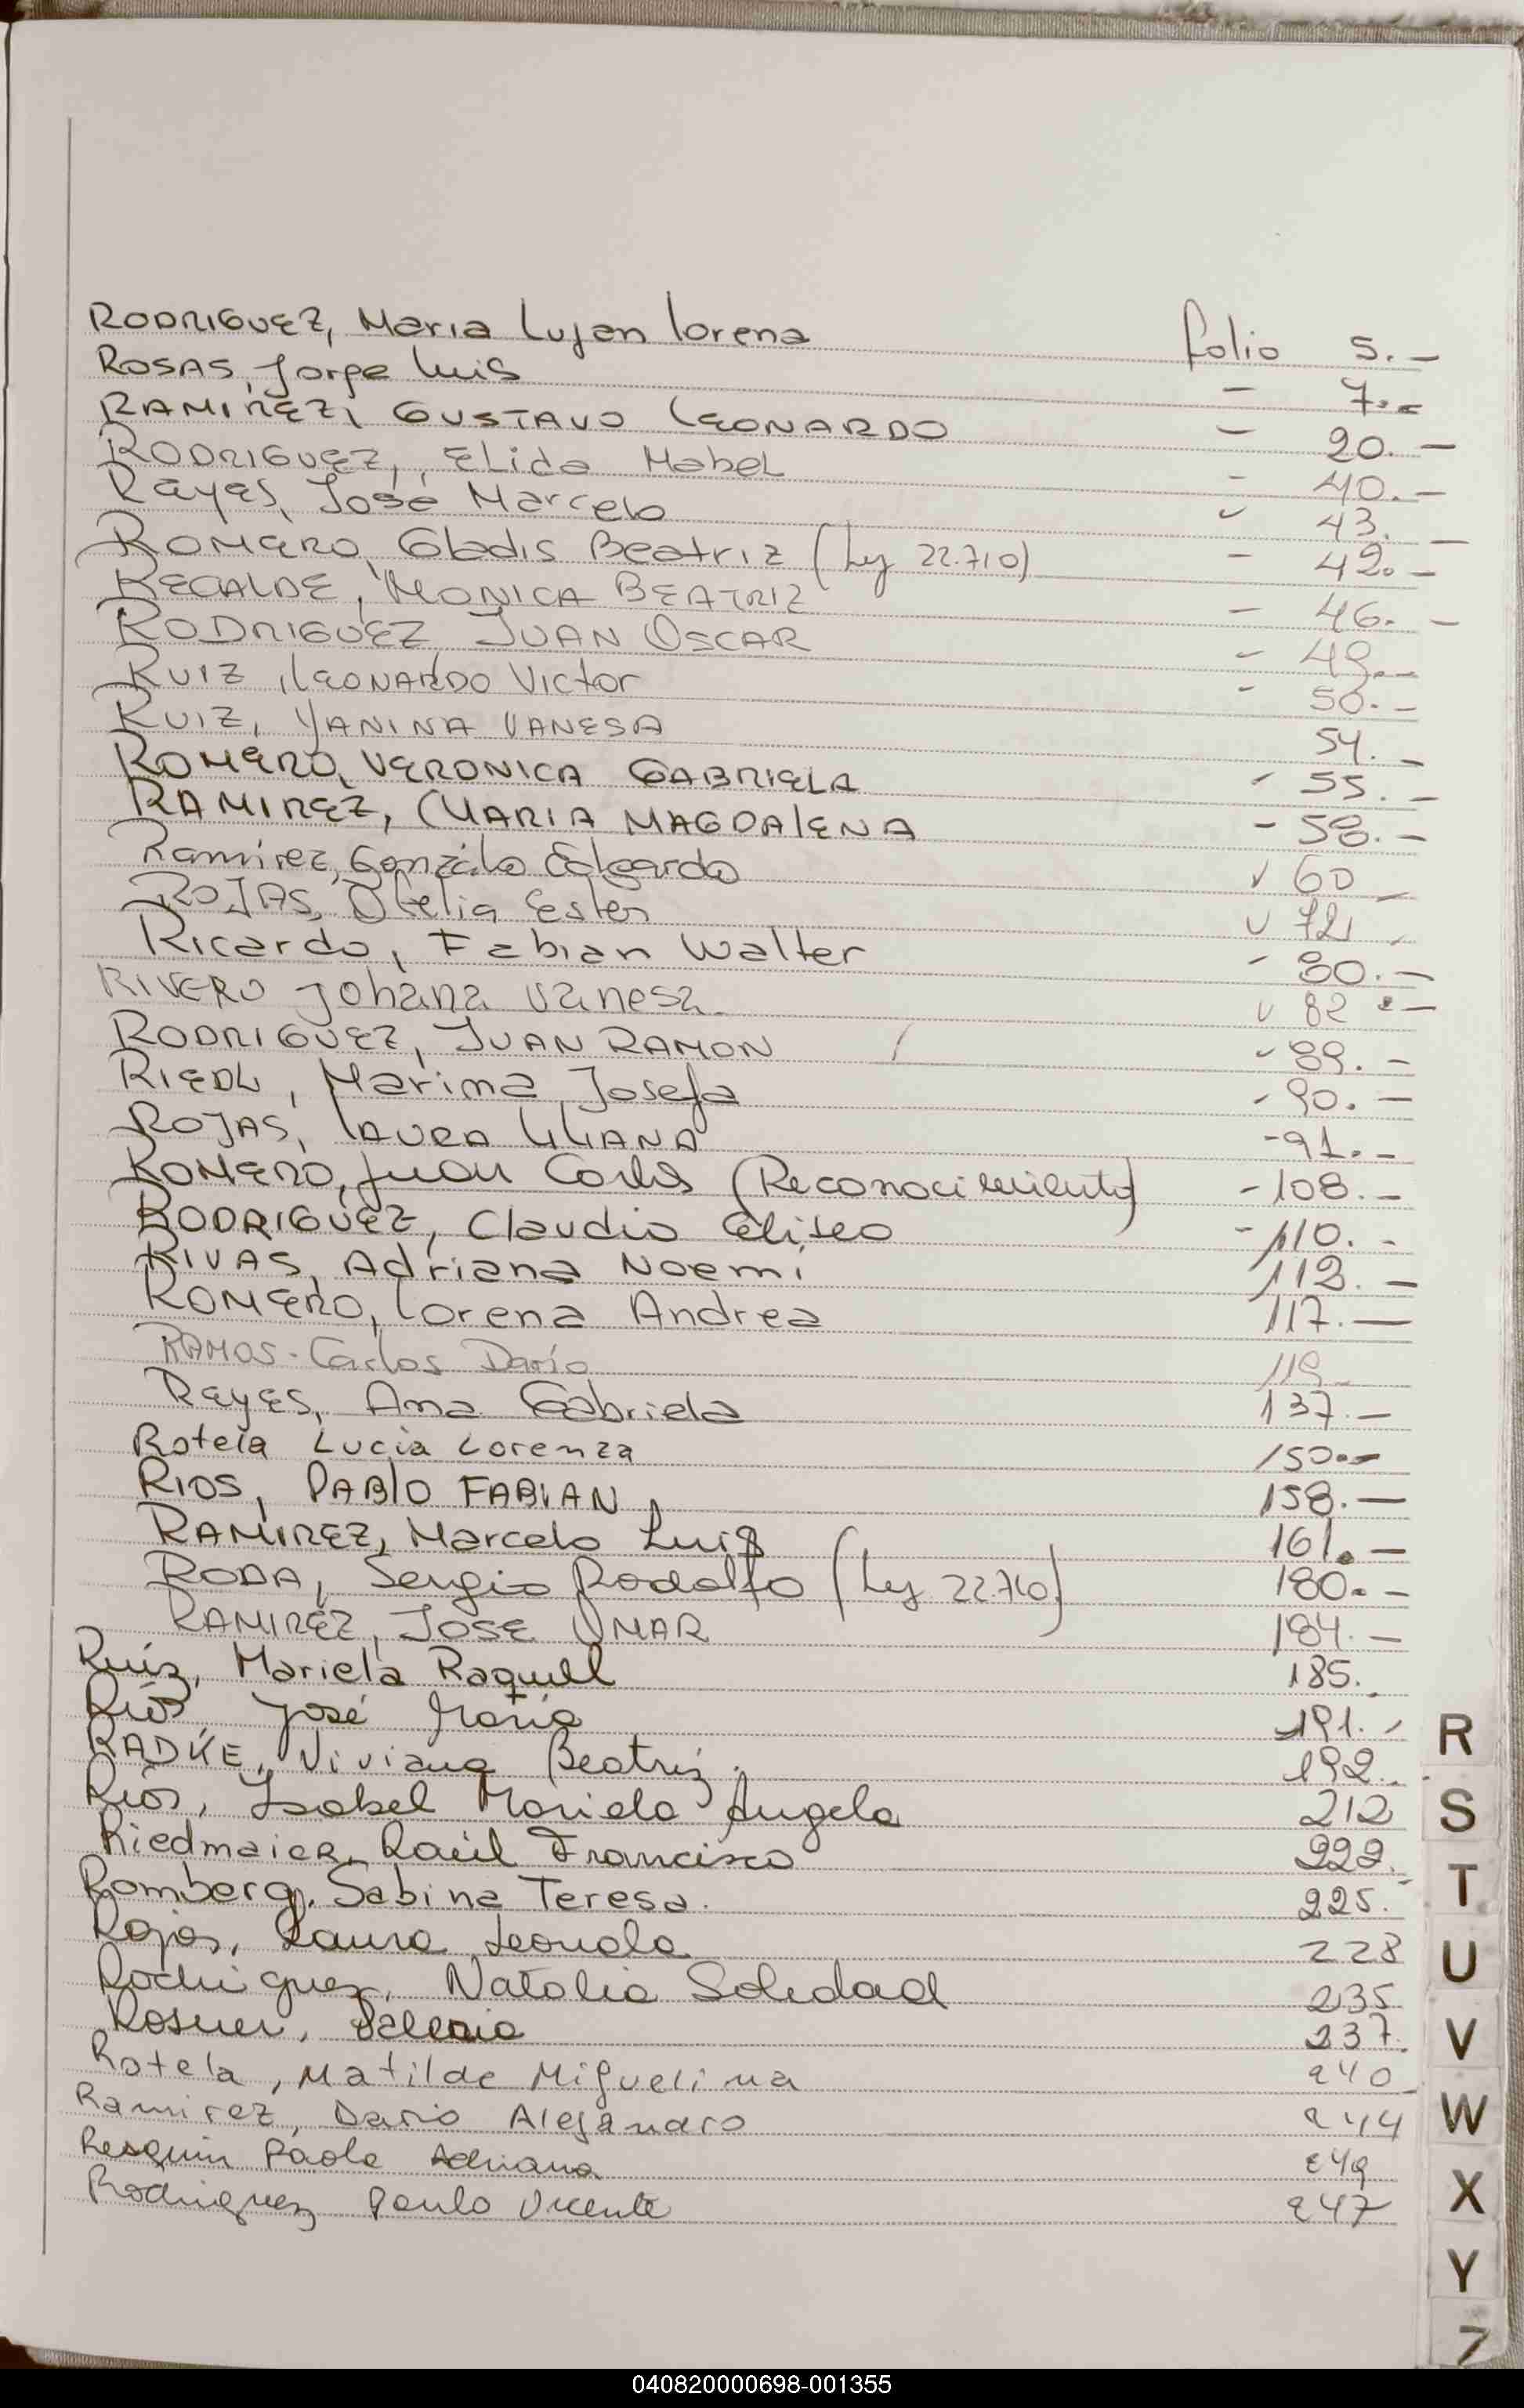 RODRIGUEZ, Maria Lujan Lorena folio 5.-
ROSAS, Jorge Luis - 7.-
RAMIREZ, GUSTAVO LEONARDO - 20.-
RODRIGUEZ, Elida Mabel - 40.-
Reyes, José Marcelo - 43.-
ROMERO, Gladis Beatriz (Ley 22.710) - 42.-
RECALDE, MONICA BEATRIZ - 46.-
RODRIGUEZ, JUAN OSCAR - 49.-
RUIZ, LEONARDO Victor - 50.-
RUIZ, YANINA VANESA 54.-
ROMERO, VERONICA GABRIELA - 55.-
RAMIREZ, MARIA MAGDALENA - 58.-
Ramirez, Gonzalo Edgardo ✓ 60
ROJAS, Ofelia Ester ✓ 72
Ricardo, Fabian Walter - 80.-
RIVERO Johana Vanesa ✓ 82.-
RODRIGUEZ, JUAN RAMON / - 89.-
RIEDL, Marina Josefa - 90.-
ROJAS, LAURA LILIANA - 91.-
ROMERO, Juan Carlos (Reconocimiento) - 108.-
RODRIGUEZ, Claudio Eliseo - 110.-
RIVAS, Adriana Noemi 112.-
ROMERO, Lorena Andrea 117.-
RAMOS - Carlos Darío 119
Reyes, Ana Gabriela 137.-
Rotela Lucia Lorenza 150.-
RIOS, PABLO FABIAN 158.-
RAMIREZ, Marcelo Luis 161.-
RODA, Sergio Rodolfo (Ley 22.710) 180.-
RAMIREZ, JOSE OMAR 184.-
Ruiz, Mariela Raquel 185.
Ríos, José María 191.-
RADKE, Viviana Beatriz. 192.
Ríos, Isabel Mariela Angela 212
Riedmaier, Raúl Francisco 222.
Romberg, Sabina Teresa. 225.
Rojas, Laura 228
Rodriguez, Natalia Soledad 235
Rosner, 237.
Rotela, Matilde Miguelina 240
Ramirez, Dario Alejandro 244
Resquin Paola Adriana 249
Rodriguez Paulo Vicente 247
R
S
T
U
V
W
X
Y
Z
040820000698-001355